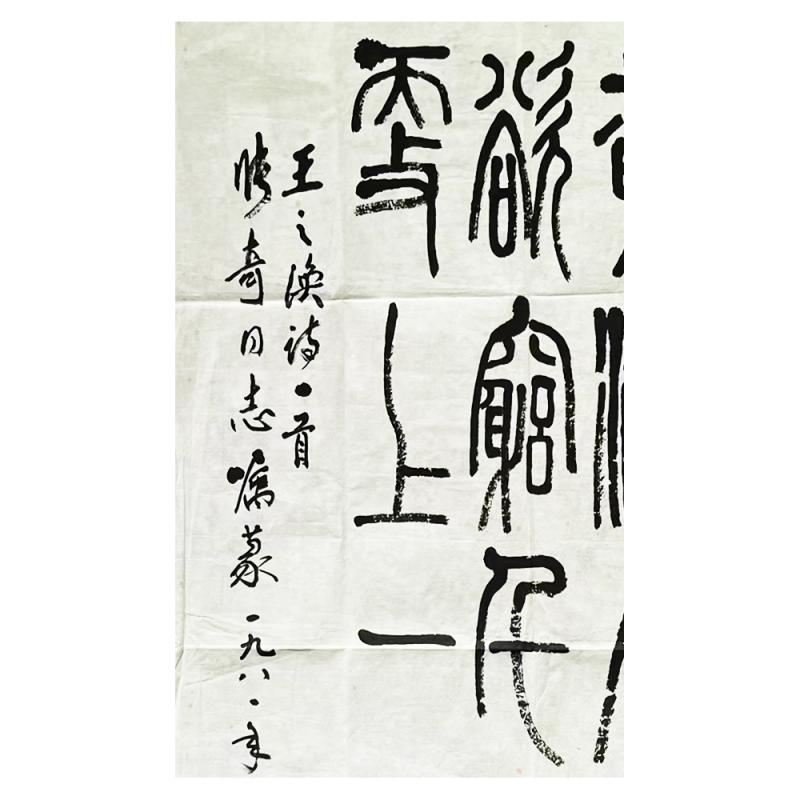 欲窮千
更上一
王之涣诗一首
奇同志嘱篆 一九八一年